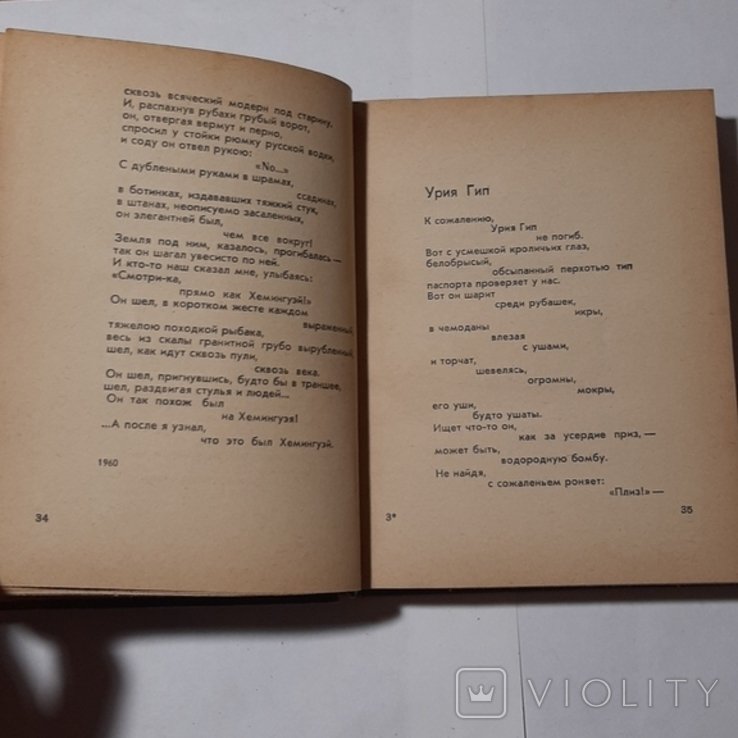 сквозь всяческий модерн под старину.
И, распахнув рубахи грубый ворот,
он, отвергая вермут и перно,
спросил у стойки рюмку русской водки,
и соду он отвел рукою:
«No...»
С дублеными руками в шрамах,
ссадинах,
в ботинках, издававших тяжкий стук,
в штанах, неописуемо засаленных,
он элегантней был,
чем все вокруг!
Земля под ним, казалось, прогибалась —
так он шагал увесисто по ней.
И кто-то наш сказал мне, улыбаясь:
«Смотри-ка,
прямо как Хемингуэй!»
Он шел, в коротком жесте каждом
выраженный,
тяжелою походкой рыбака,
весь из скалы гранитной грубо вырубленный,
шел, как идут сквозь пули,
сквозь века.
Он шел, пригнувшись, будто бы в траншее,
шел, раздвигая стулья и людей...
Он так похож был
на Хемингуэя!
...А после я узнал,
что это был Хемингуэй.
1960
34
Урия Гип
К сожалению,
Урия Гип
не погиб.
Вот с усмешкой кроличьих глаз,
белобрысый,
обсыпанный перхотью тип
паспорта проверяет у нас.
Вот он шарит
среди рубашек,
икры,
в чемоданы
влезая
с ушами,
и торчат,
шевелясь,
огромны,
мокры,
его уши,
будто ушаты.
Ищет что-то он,
как за усердие приз,—
может быть,
водородную бомбу.
Не найдя,
с сожаленьем роняет:
«Плиз!» —
3*
35
VIOLITY